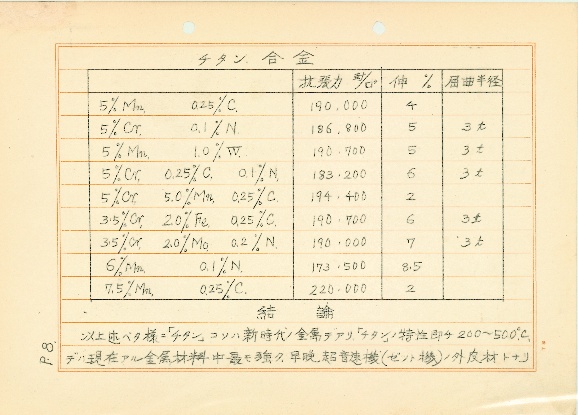 チタン 合金
抗張力 封/□" 伸 % 屈曲半径
5% Mn. 0.25% C. 190,000 4
5% Cr. 0.1% N. 186,800 5 3t
5% Mn. 1.0% W. 190,700 5 3t
5% Cr. 0.25% C. 0.1% N. 183,200 6 3t
5% Cr. 5.0% Mn. 0.25% C. 194,400 2
3.5% Cr. 2.0% Fe. 0.25% C. 190,700 6 3t
3.5% Cr. 2.0% Mo. 0.2% N. 190,000 7 3t
6% Mn. 0.1% N. 173,500 8.5
7.5% Mn. 0.25% C. 220,000 2
結論
以上述ベタ様ニ「チタン」コソハ新時代ノ金属デアリ「チタン」ノ特性即チ200〜500℃.
デハ現在アル金属材料中最モ強ク、早晩超音速機(ゼット機)ノ外皮材トナリ
P.8.